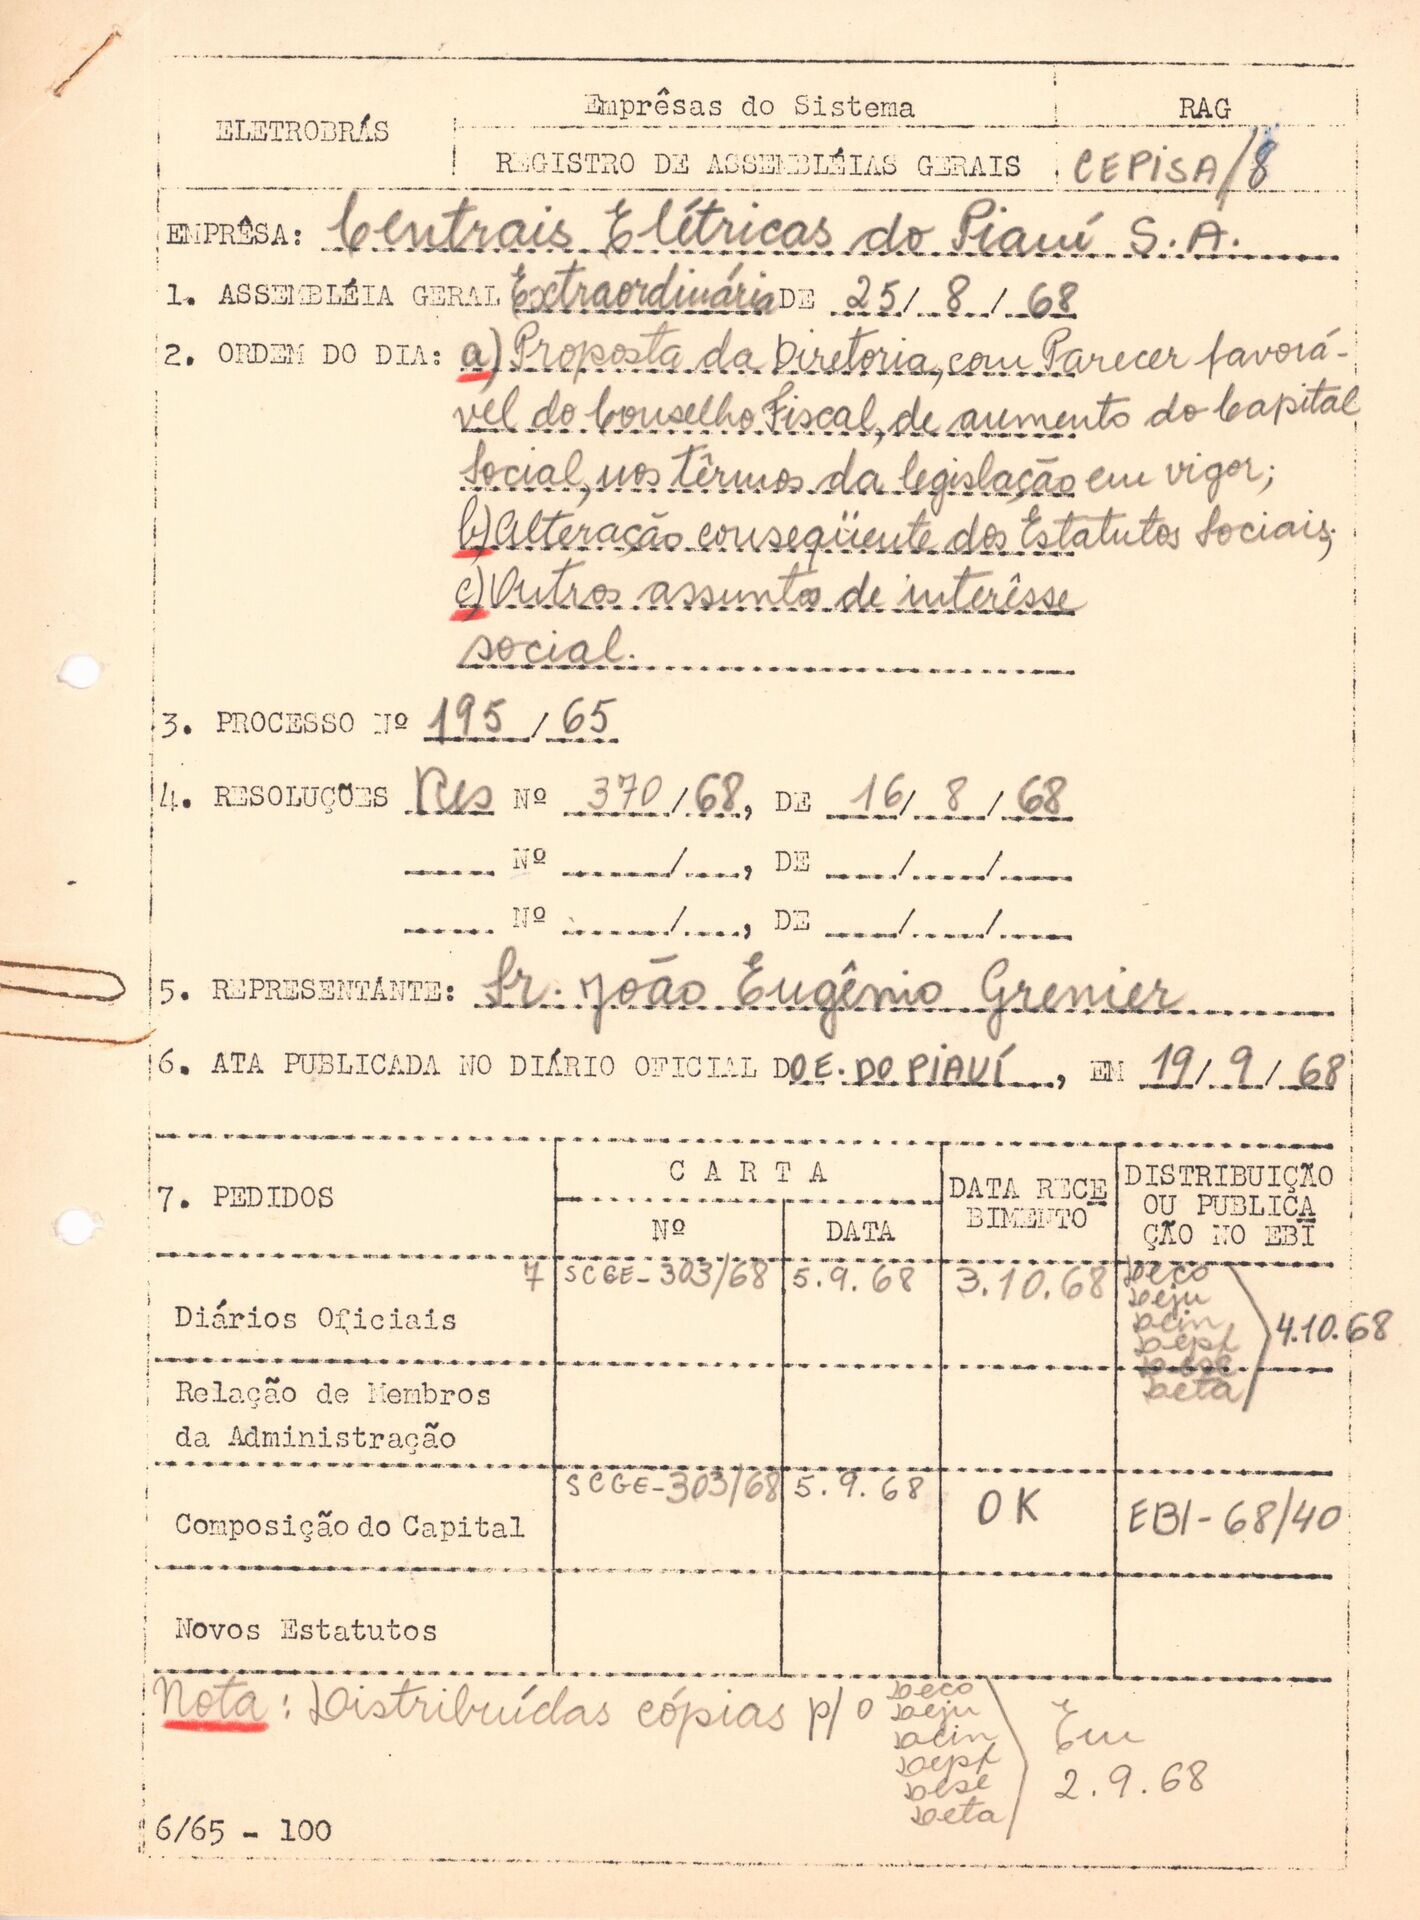 ELETROBRÁS
Emprêsas do Sistema
RAG
REGISTRO DE ASSEMBLÉIAS GERAIS
CEPISA/8
EMPRÊSA: Centrais Elétricas do Piauí S.A.
1. ASSEMBLÉIA GERAL Extraordinária DE 25/8/68
2. ORDEM DO DIA: a) Proposta da Diretoria, com Parecer favorá-
vel do Conselho Fiscal, de aumento do Capital
Social, nos têrmos da legislação em vigor;
b) Alteração conseqüente dos Estatutos Sociais;
c) Outros assuntos de interêsse
social.
3. PROCESSO Nº 195/65
4. RESOLUÇÕES Res Nº 370/68, DE 16/8/68
Nº /, DE / /
Nº /, DE / /
5. REPRESENTANTE: Sr. João Eugênio Grenier
6. ATA PUBLICADA NO DIÁRIO OFICIAL DO E. DO PIAUÍ, EM 19/9/68
7. PEDIDOS
CARTA
Nº
DATA
DATA RECE
BIMENTO
DISTRIBUIÇÃO
OU PUBLICA
ÇÃO NO EBI
Diários Oficiais
7
SCGE-303/68
5.9.68
3.10.68
Deco
Deju
Dcin
Dept
Dese
Deta
4.10.68
Relação de Membros
da Administração
Composição do Capital
SCGE-303/68
5.9.68
OK
EBI-68/40
Novos Estatutos
Nota: Distribuídas cópias p/ o
Deco
Deju
Dcin
Dept
Dese
Deta
Em
2.9.68
6/65 - 100